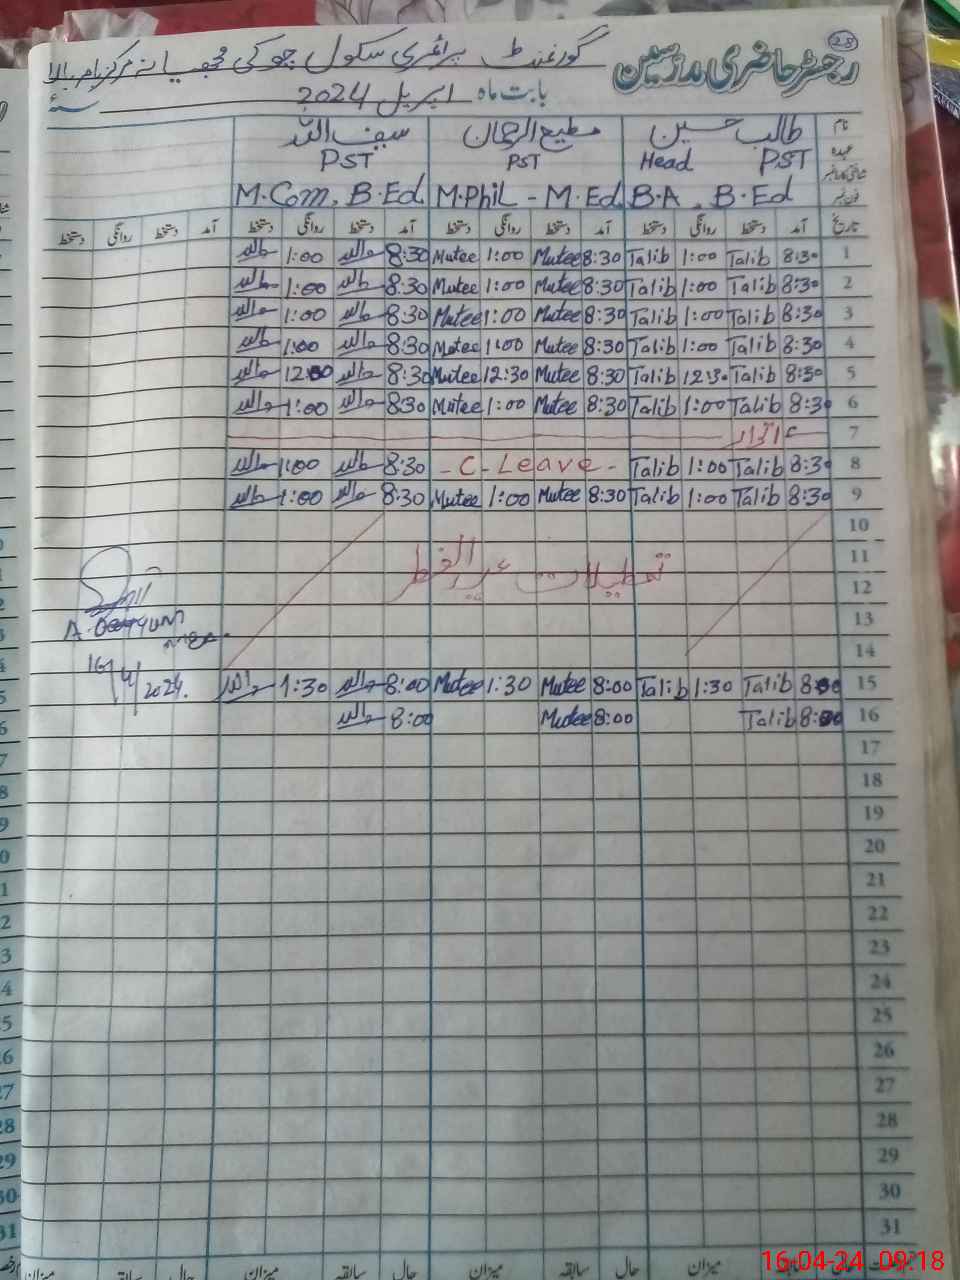 28
رجسٹر حاضری مدرسین
گورنمنٹ پرائمری سکول چوکی
بابت ماہ اپریل 2024 سنہٴ
نام طالب حسین مطیع الرحمان سیف اللہ
عہدہ PST Head PST PST
شناختی کارڈ نمبر
فون نمبر B.A, B.Ed M.Phil - M.Ed M.Com, B.Ed
تاریخ آمد دستخط روانگی دستخط آمد دستخط روانگی دستخط آمد دستخط روانگی دستخط آمد دستخط روانگی دستخط
1 8:30 Talib 1:00 Talib 8:30 Mutee 1:00 Mutee 8:30 1:00
2 8:30 Talib 1:00 Talib 8:30 Mutee 1:00 Mutee 8:30 1:00
3 8:30 Talib 1:00 Talib 8:30 Mutee 1:00 Mutee 8:30 1:00
4 8:30 Talib 1:00 Talib 8:30 Mutee 1:00 Mutee 8:30 1:00
5 8:30 Talib 12:30 Talib 8:30 Mutee 12:30 Mutee 8:30
6 8:30 Talib 1:00 Talib 8:30 Mutee 1:00 Mutee 8:30 1:00
7 اتوار
8 8:30 Talib 1:00 Talib - C - Leave - 8:30 1:00
9 8:30 Talib 1:00 Talib 8:30 Mutee 1:00 Mutee 8:30 1:00
10
11 تعطیلات عید الفطر
12
13
14
15 8:00 Talib 1:30 Talib 8:00 Mutee 1:30 Mutee 8:00 1:30
16 8:00 Talib 8:00 Mutee 8:00
16/4/2024.
17
18
19
20
21
22
23
24
25
26
27
28
29
30
31
سابقہ حال میزان سابقہ حال میزان سابقہ حال میزان
16-04-24 09:18